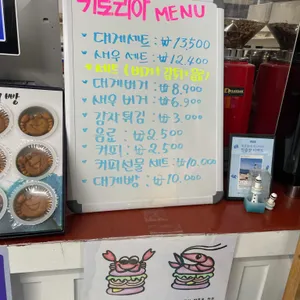 키토리아 MENU
* 대게세트: ₩13,500
* 새우 세트: ₩12,400
* 대게버거: ₩8,900
* 새우 버거: ₩6,900
* 감자튀김: ₩3,000
* 음료: ₩2,500
* 커피: ₩2,500
* 커피선물 세트: ₩10,000
* 대게빵: ₩10,000